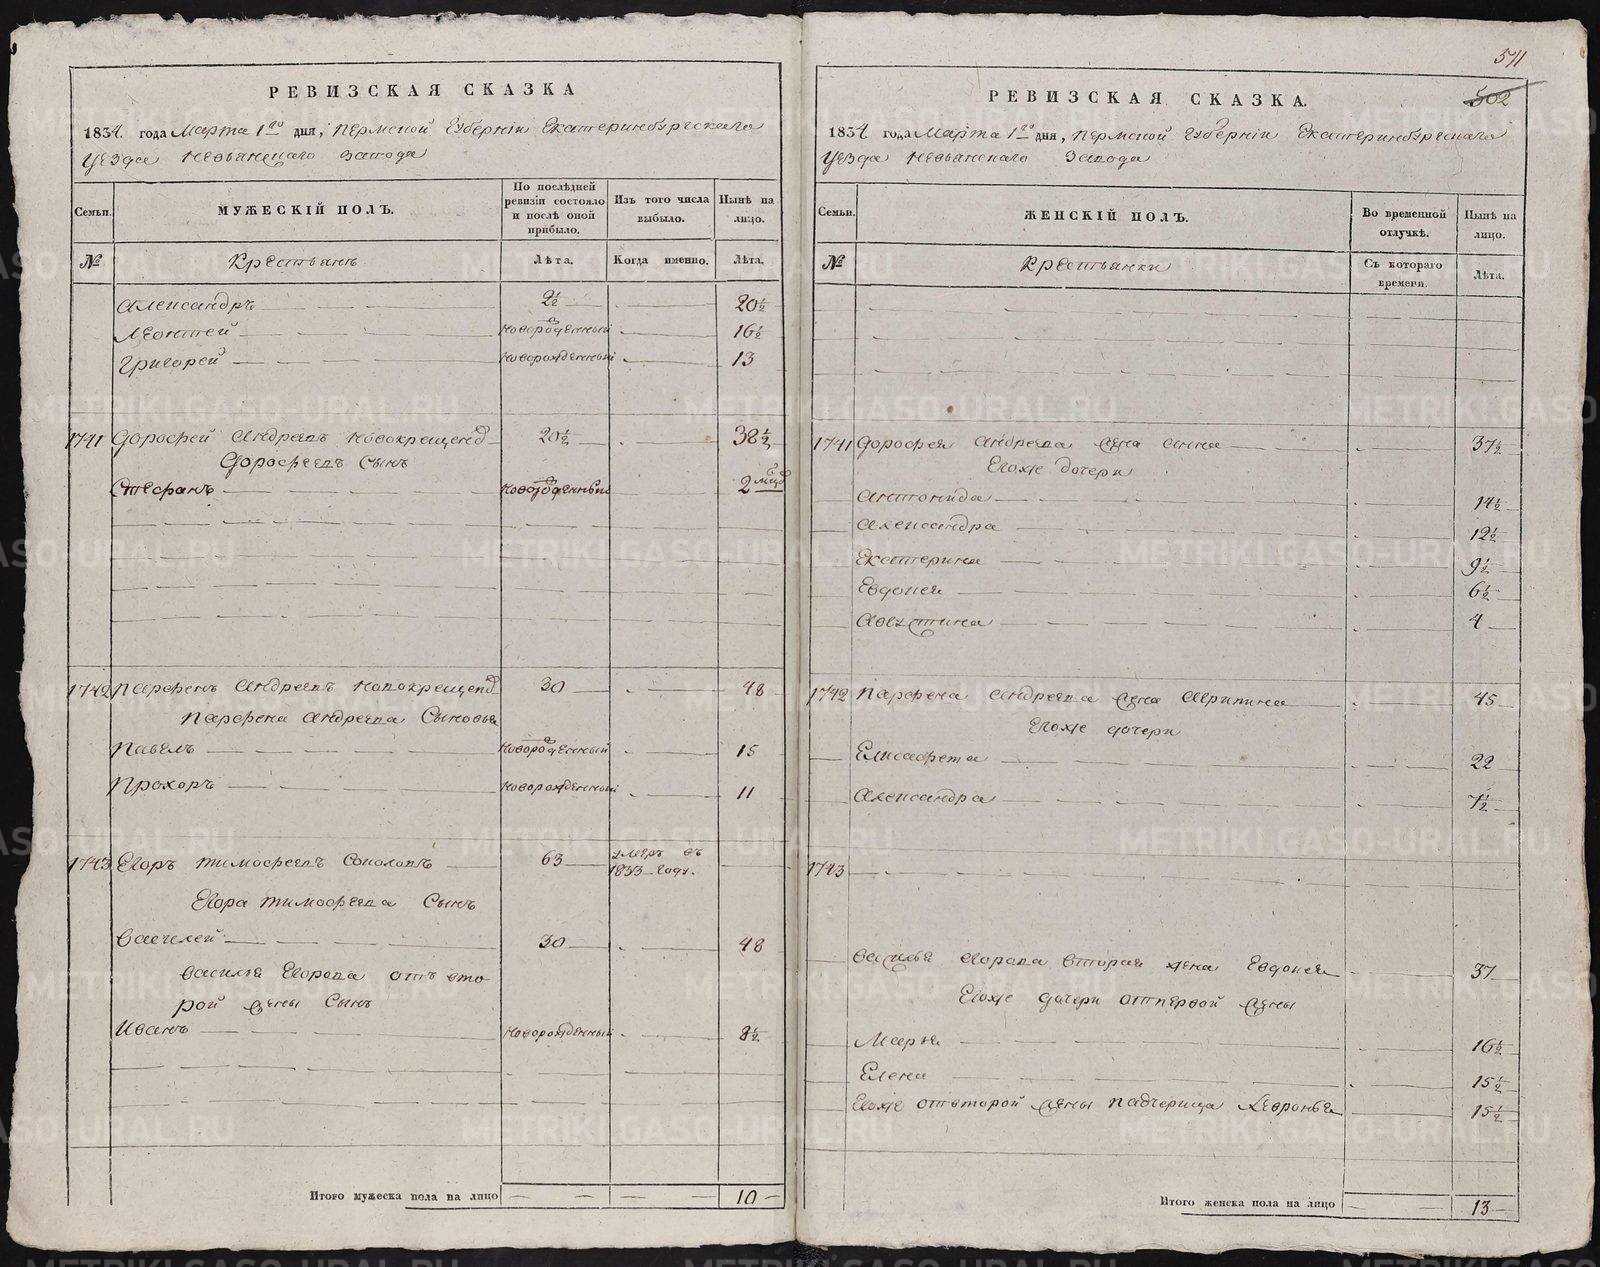 РЕВИЗСКАЯ СКАЗКА
1834. года Марта 1го дня, Пермской Губерніи Екатеринбургскаго
Уезда Невьянскаго Завода
Семьи.
МУЖЕСКІЙ ПОЛЪ.
По послѣдней ревизіи состояло и послѣ оной прибыло.
Изъ того числа выбыло.
Нынѣ на лицо.
№
Крестьянъ
Лѣта.
Когда именно.
Лѣта.
Александръ 2½ 20½
Леонтей новорожденный 16½
Григорей новорожденный 13
1741 Дорофей Андреевъ Новокрещеновъ 20½ 38½
Дорофеевъ Сынъ
Стефанъ новорожденный 2 мцъ
1742 Парфенъ Андреевъ Новокрещеновъ 30 48
Парфена Андреева Сыновья
Павелъ новорожденный 15
Прохоръ новорожденный 11
1743 Егоръ Тимофеевъ Соколовъ 63 умеръ въ 1833 году.
Егора Тимофеева Сынъ
Василей 30 48
Василья Егорова отъ вто
рой жены Сынъ
Иванъ новорожденный 8½
Итого мужеска пола на лицо 10
571
502
РЕВИЗСКАЯ СКАЗКА.
1834 года Марта 1го дня, Пермской Губерніи Екатеринбургскаго
Уезда Невьянскаго Завода
Семьи.
ЖЕНСКІЙ ПОЛЪ.
Во временной отлучкѣ.
Нынѣ на лицо.
№
Крестьянки
Съ котораго времени.
Лѣта.
1741 Дорофея Андреева жена Анна 37½
Егоже дочери
Антонида 14½
Александра 12½
Екатерина 9½
Евдокея 6½
Августина 4
1742 Парфена Андреева жена Агрипина 45
Егоже дочери
Елисафета 22
Александра 7½
1743
Василья Егорова вторая жена Евдокея 37
Егоже дочери отпервой жены
Марья 16½
Елена 15½
Егоже отвторой жены падчерица Хевронья 15½
Итого женска пола на лицо 13
METRIKI.GASO-URAL.RU